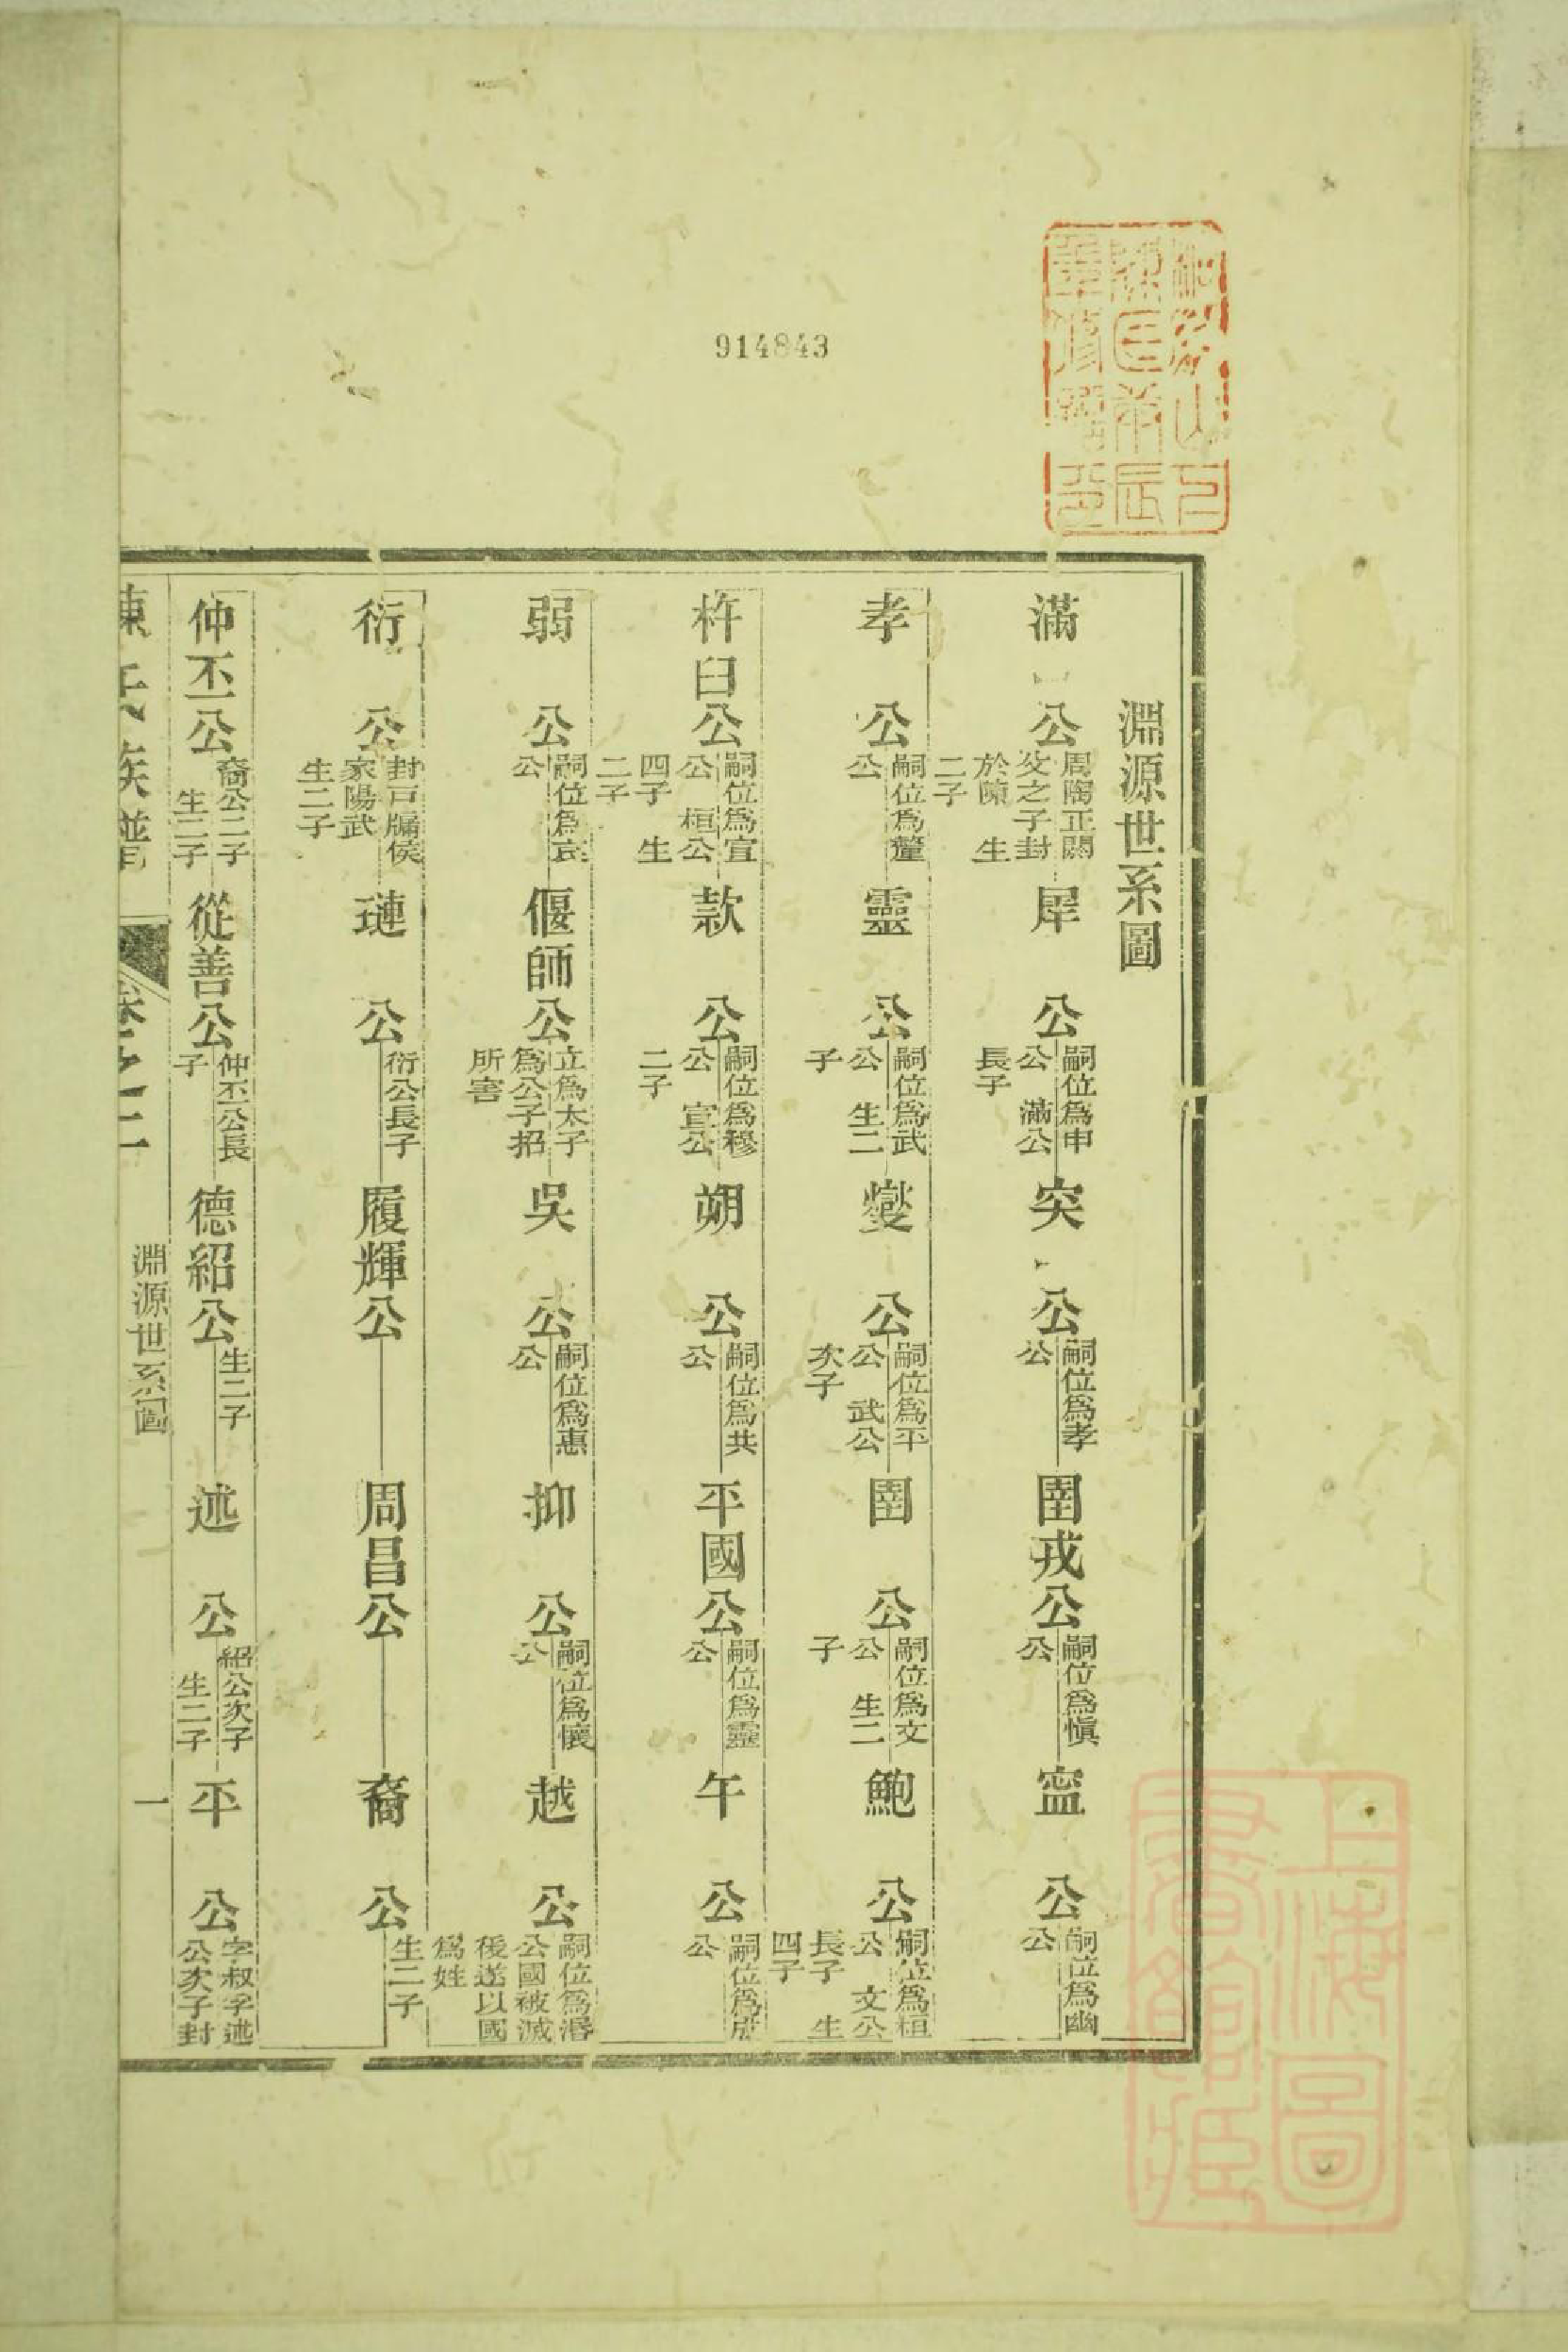 914843
淵源世系圖
滿公 周陶正閼父之子封於陳 生二子
犀公 嗣位爲申公 滿公長子
突公 嗣位爲孝公
圉戎公 嗣位爲愼公
寍公 嗣位爲幽公
孝公 嗣位爲釐公
靈公 嗣位爲武公 生二子
燮公 嗣位爲平公 武公次子
圉公 嗣位爲文公 生二子
鮑公 嗣位爲桓公 文公長子 生四子
杵臼公 嗣位爲宣公 桓公四子 生二子
款公 嗣位爲穆公 宣公二子
朔公 嗣位爲共公
平國公 嗣位爲靈公
午公 嗣位爲成公
弱公 嗣位爲哀公
偃師公 立爲太子爲公子招所害
吳公 嗣位爲惠公
抑公 嗣位爲懷公
越公 嗣位爲湣公國被滅後遂以國爲姓
衍公 封戸牖侯家陽武生二子
璉公 衍公長子
履輝公
周昌公
裔公 生二子
仲丕公 裔公二子 生二子
從善公 仲丕公長子
德紹公 生二子
述公 紹公次子 生二子
平公 字叔孚述公次子封
陳氏族譜 卷之二 淵源世系圖 一
上海圖書館藏